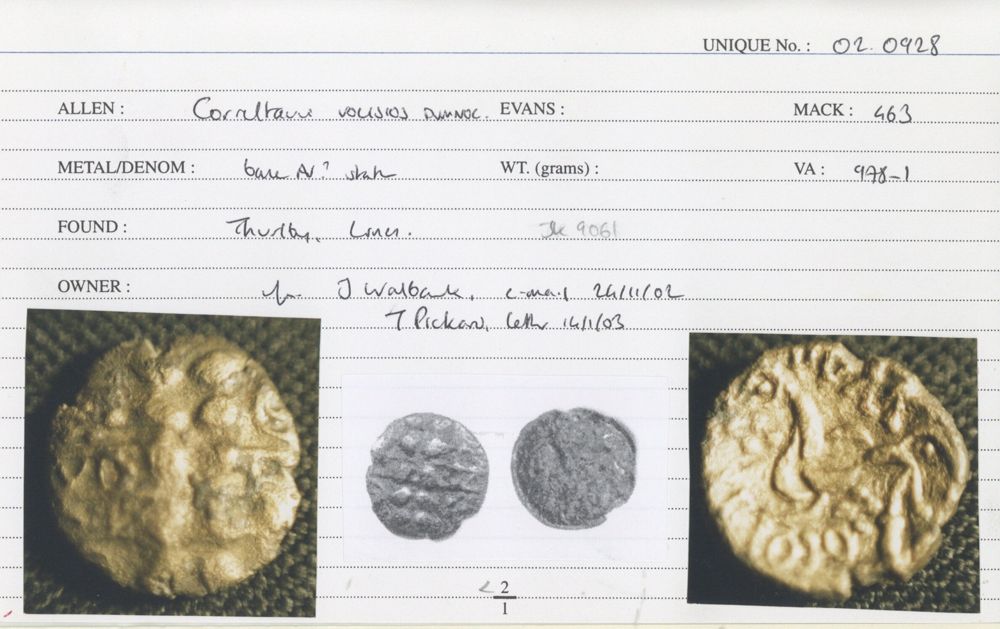 UNIQUE No. : 02.0928
ALLEN : Corieltauvi VOLISIOS DUMNOC. EVANS : MACK : 463
METAL/DENOM : base AV? stater WT. (grams) : VA : 978-1
FOUND : Thurlby, Lincs.
9061
OWNER : J Walbank, e-mail 24/11/02
T Pickard, letter 14/1/03
2
1